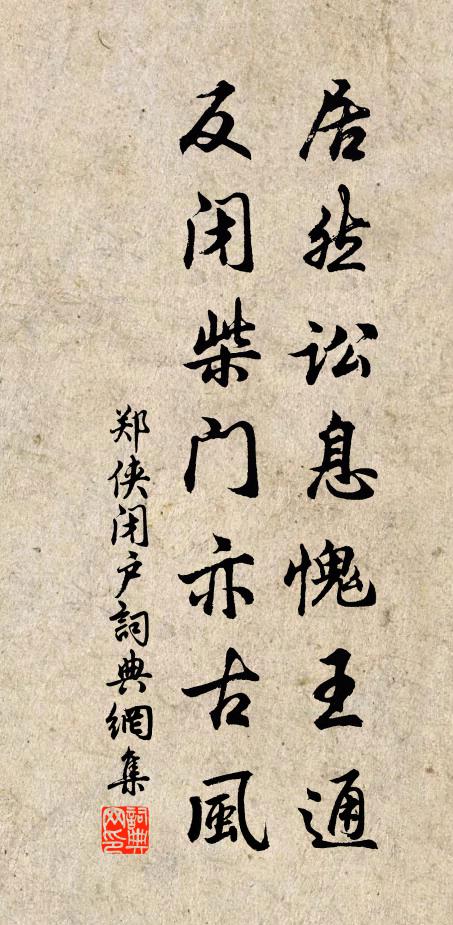 居然讼息愧王通
反闭柴门亦古風
郑侠闭户詞典網集
詞典網印